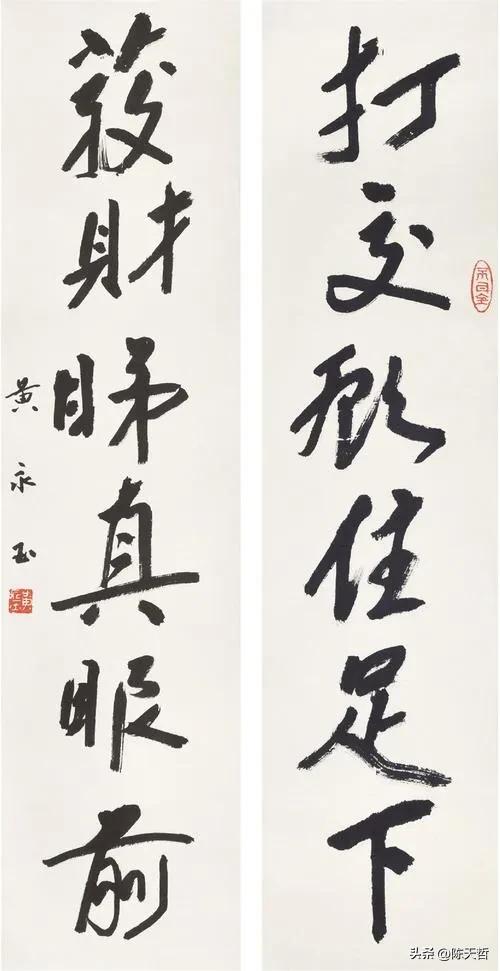 打交顧住足下
發財睇真眼前
黄永玉
头条 @陈天哲